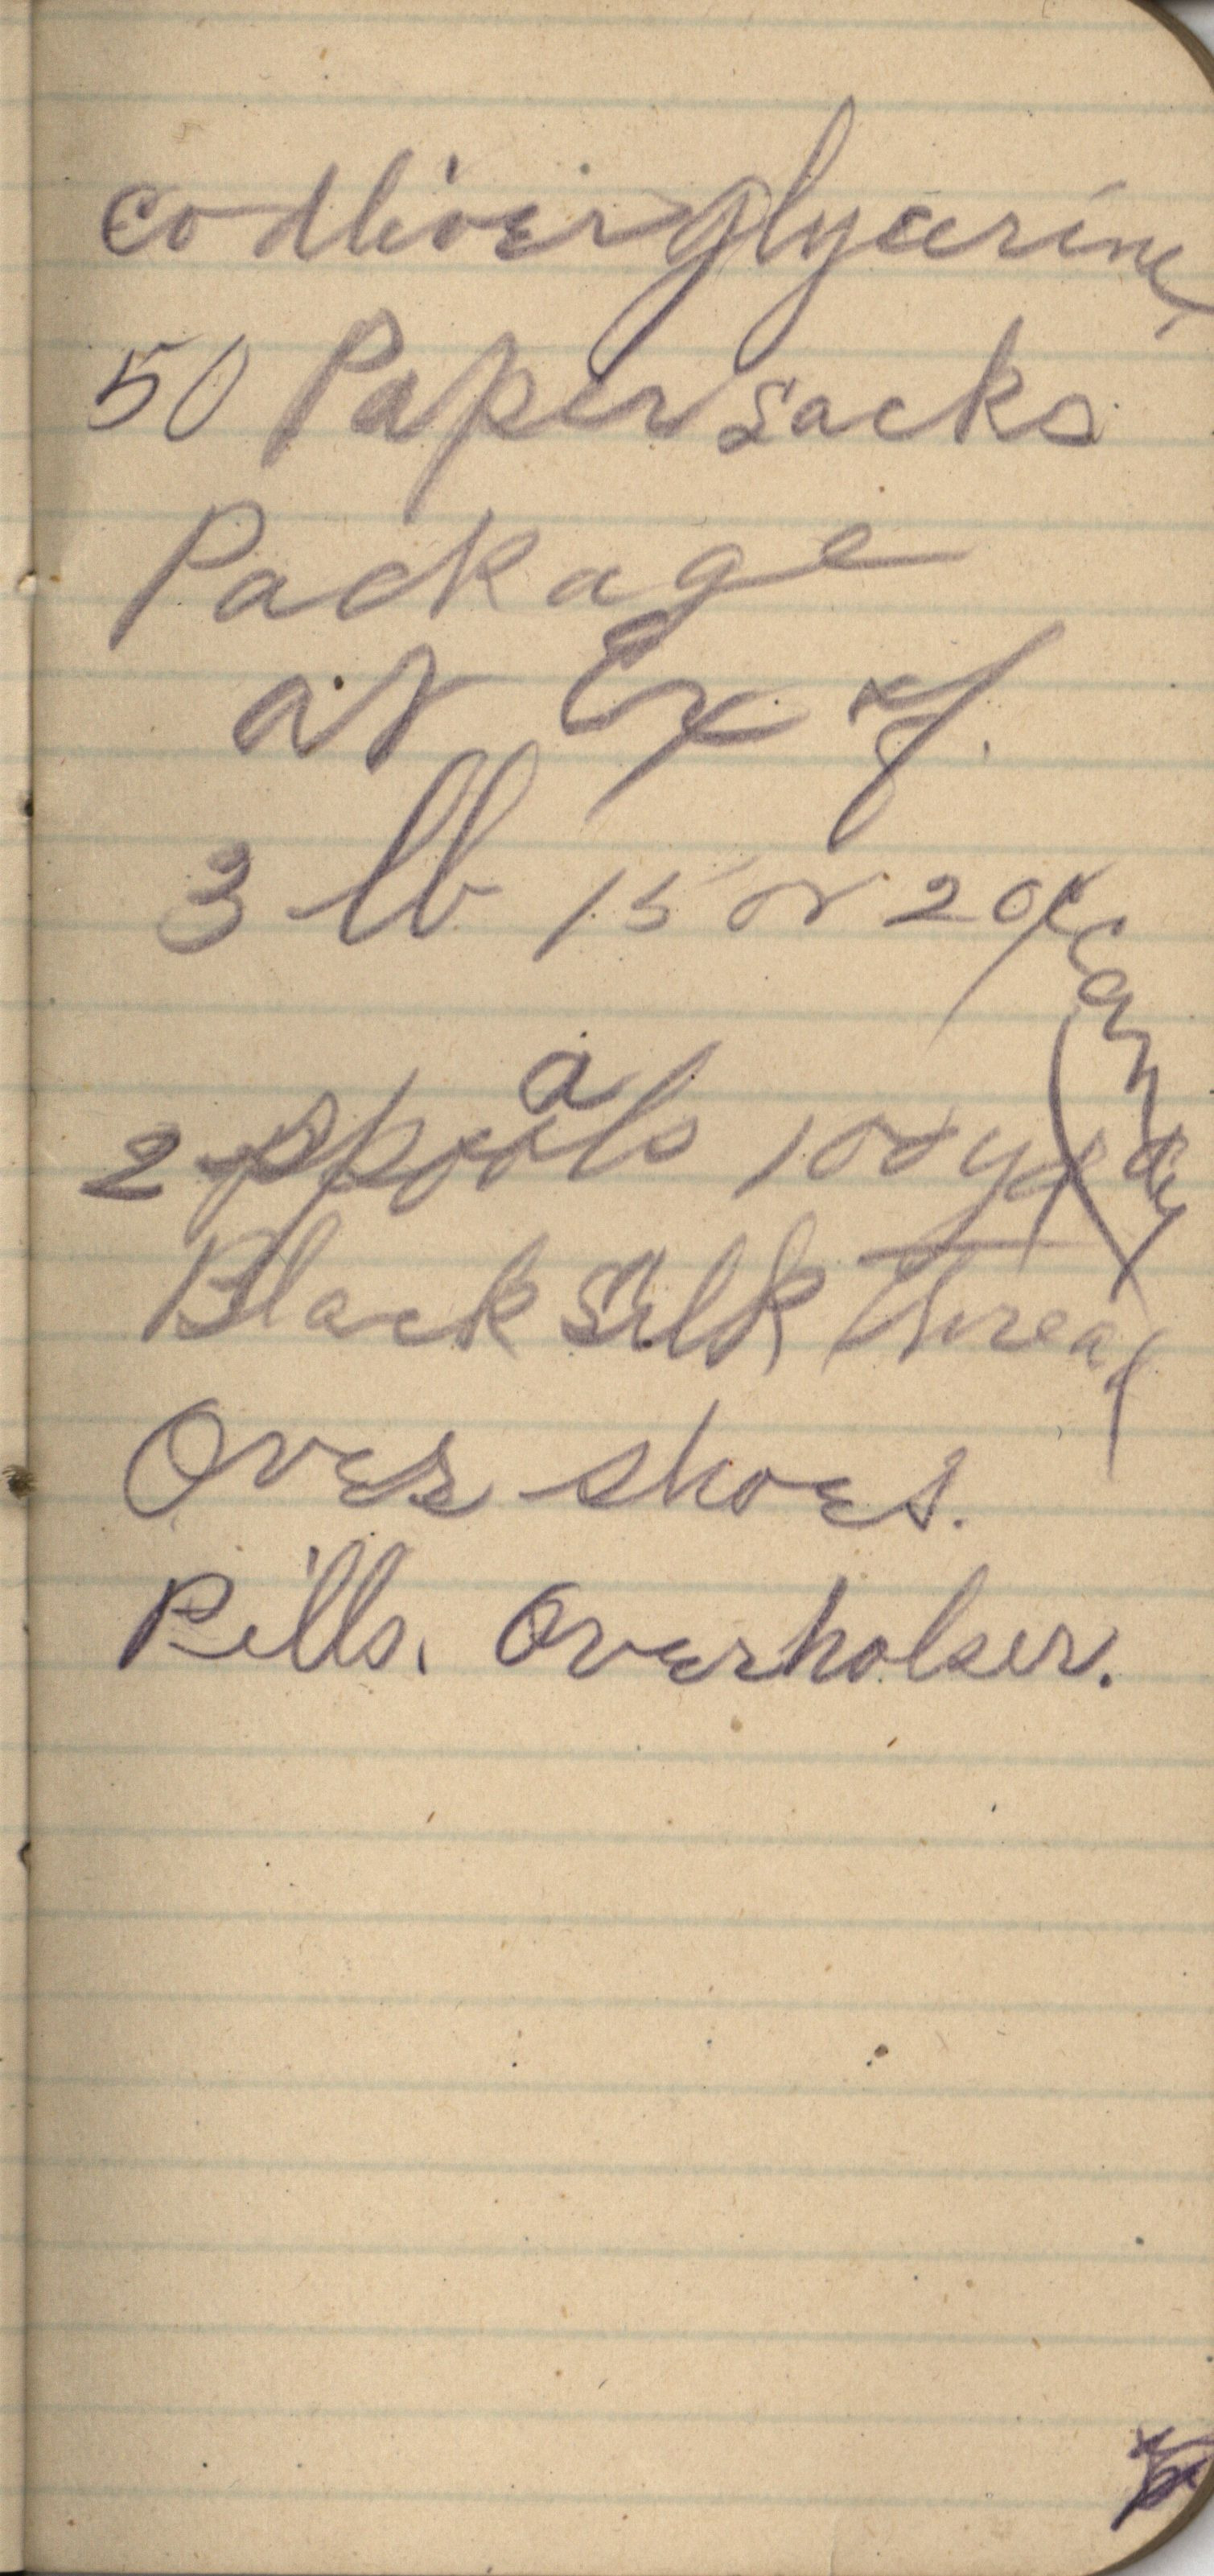 codliver glycerine
50 Paper sacks
Package
at Ex of.
3 lb 15 or 20¢ Candy
a
2 spools 100 yd
Black Silk Thread
Over shoes.
Pills. Overholser.